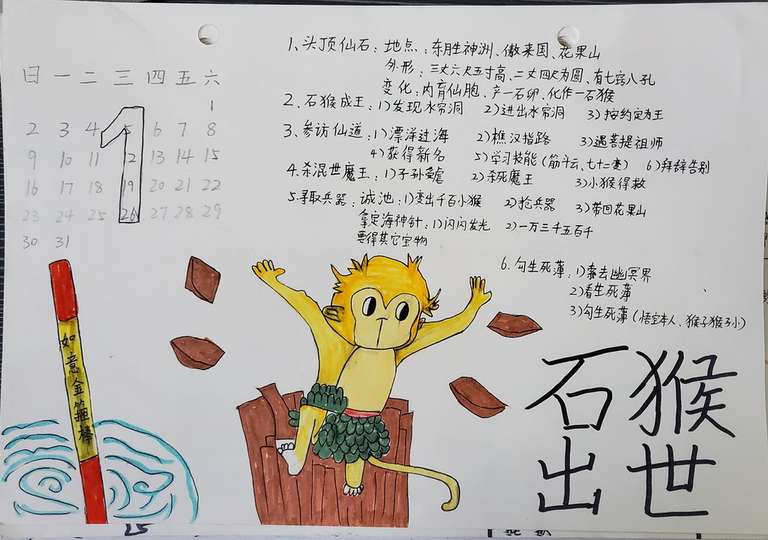 日 一 二 三 四 五 六
1
1
2 3 4 5 6 7 8
9 10 11 12 13 14 15
16 17 18 19 20 21 22
23 24 25 26 27 28 29
30 31
1、头顶仙石：地点：东胜神洲、傲来国、花果山
外形：三丈六尺五寸高、二丈四尺为圆、有七窍八孔
变化：内育仙胞、产一石卵、化作一石猴
2、石猴成王：1)发现水帘洞 2)进出水帘洞 3)按约定为王
3、参访仙道：1)漂洋过海 2)樵汉指路 3)遇菩提祖师
4)获得新名 5)学习技能(筋斗云、七十二变) 6)拜辞告别
4、杀混世魔王：1)子孙受虐 2)杀死魔王 3)小猴得救
5、寻取兵器：诚池：1)变出千百小猴 2)抢兵器 3)带回花果山
拿定海神针：1)闪闪发光 2)一万三千五百千
要得其它宝物
6、勾生死薄：1)靠去幽冥界
2)看生死薄
3)勾生死薄(悟空本人、猴子猴子小)
如意金箍棒
石猴
出世